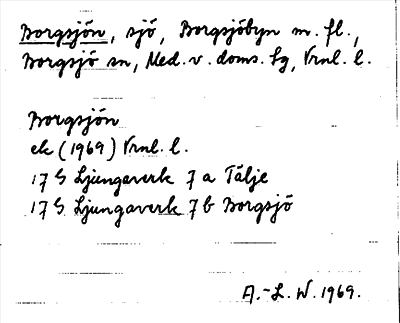 Borgsjön, sjö, Borgsjöbyn m. fl.,
Borgsjö sn, Med. v. doms. hg, Vrnl. l.
Borgsjön
ek (1969) Vrnl. l.
17 G Ljungaverk 7 a Tälje
17 G Ljungaverk 7 b Borgsjö
A.-L. W. 1969.